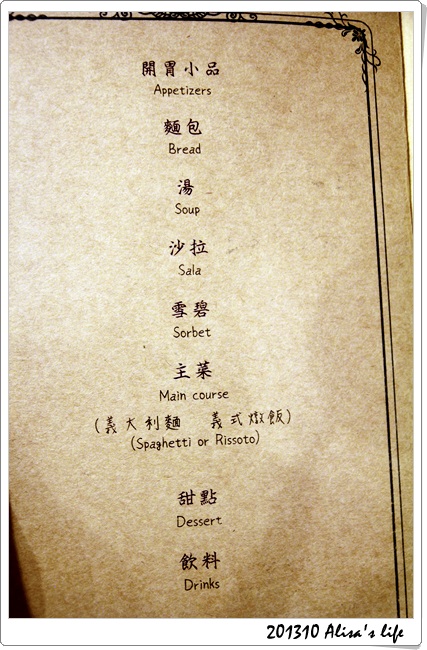 開胃小品
Appetizers
麵包
Bread
湯
Soup
沙拉
Sala
雪碧
Sorbet
主菜
Main course
(義大利麵 義式燉飯)
(Spaghetti or Rissoto)
甜點
Dessert
飲料
Drinks
201310 Alisa's life